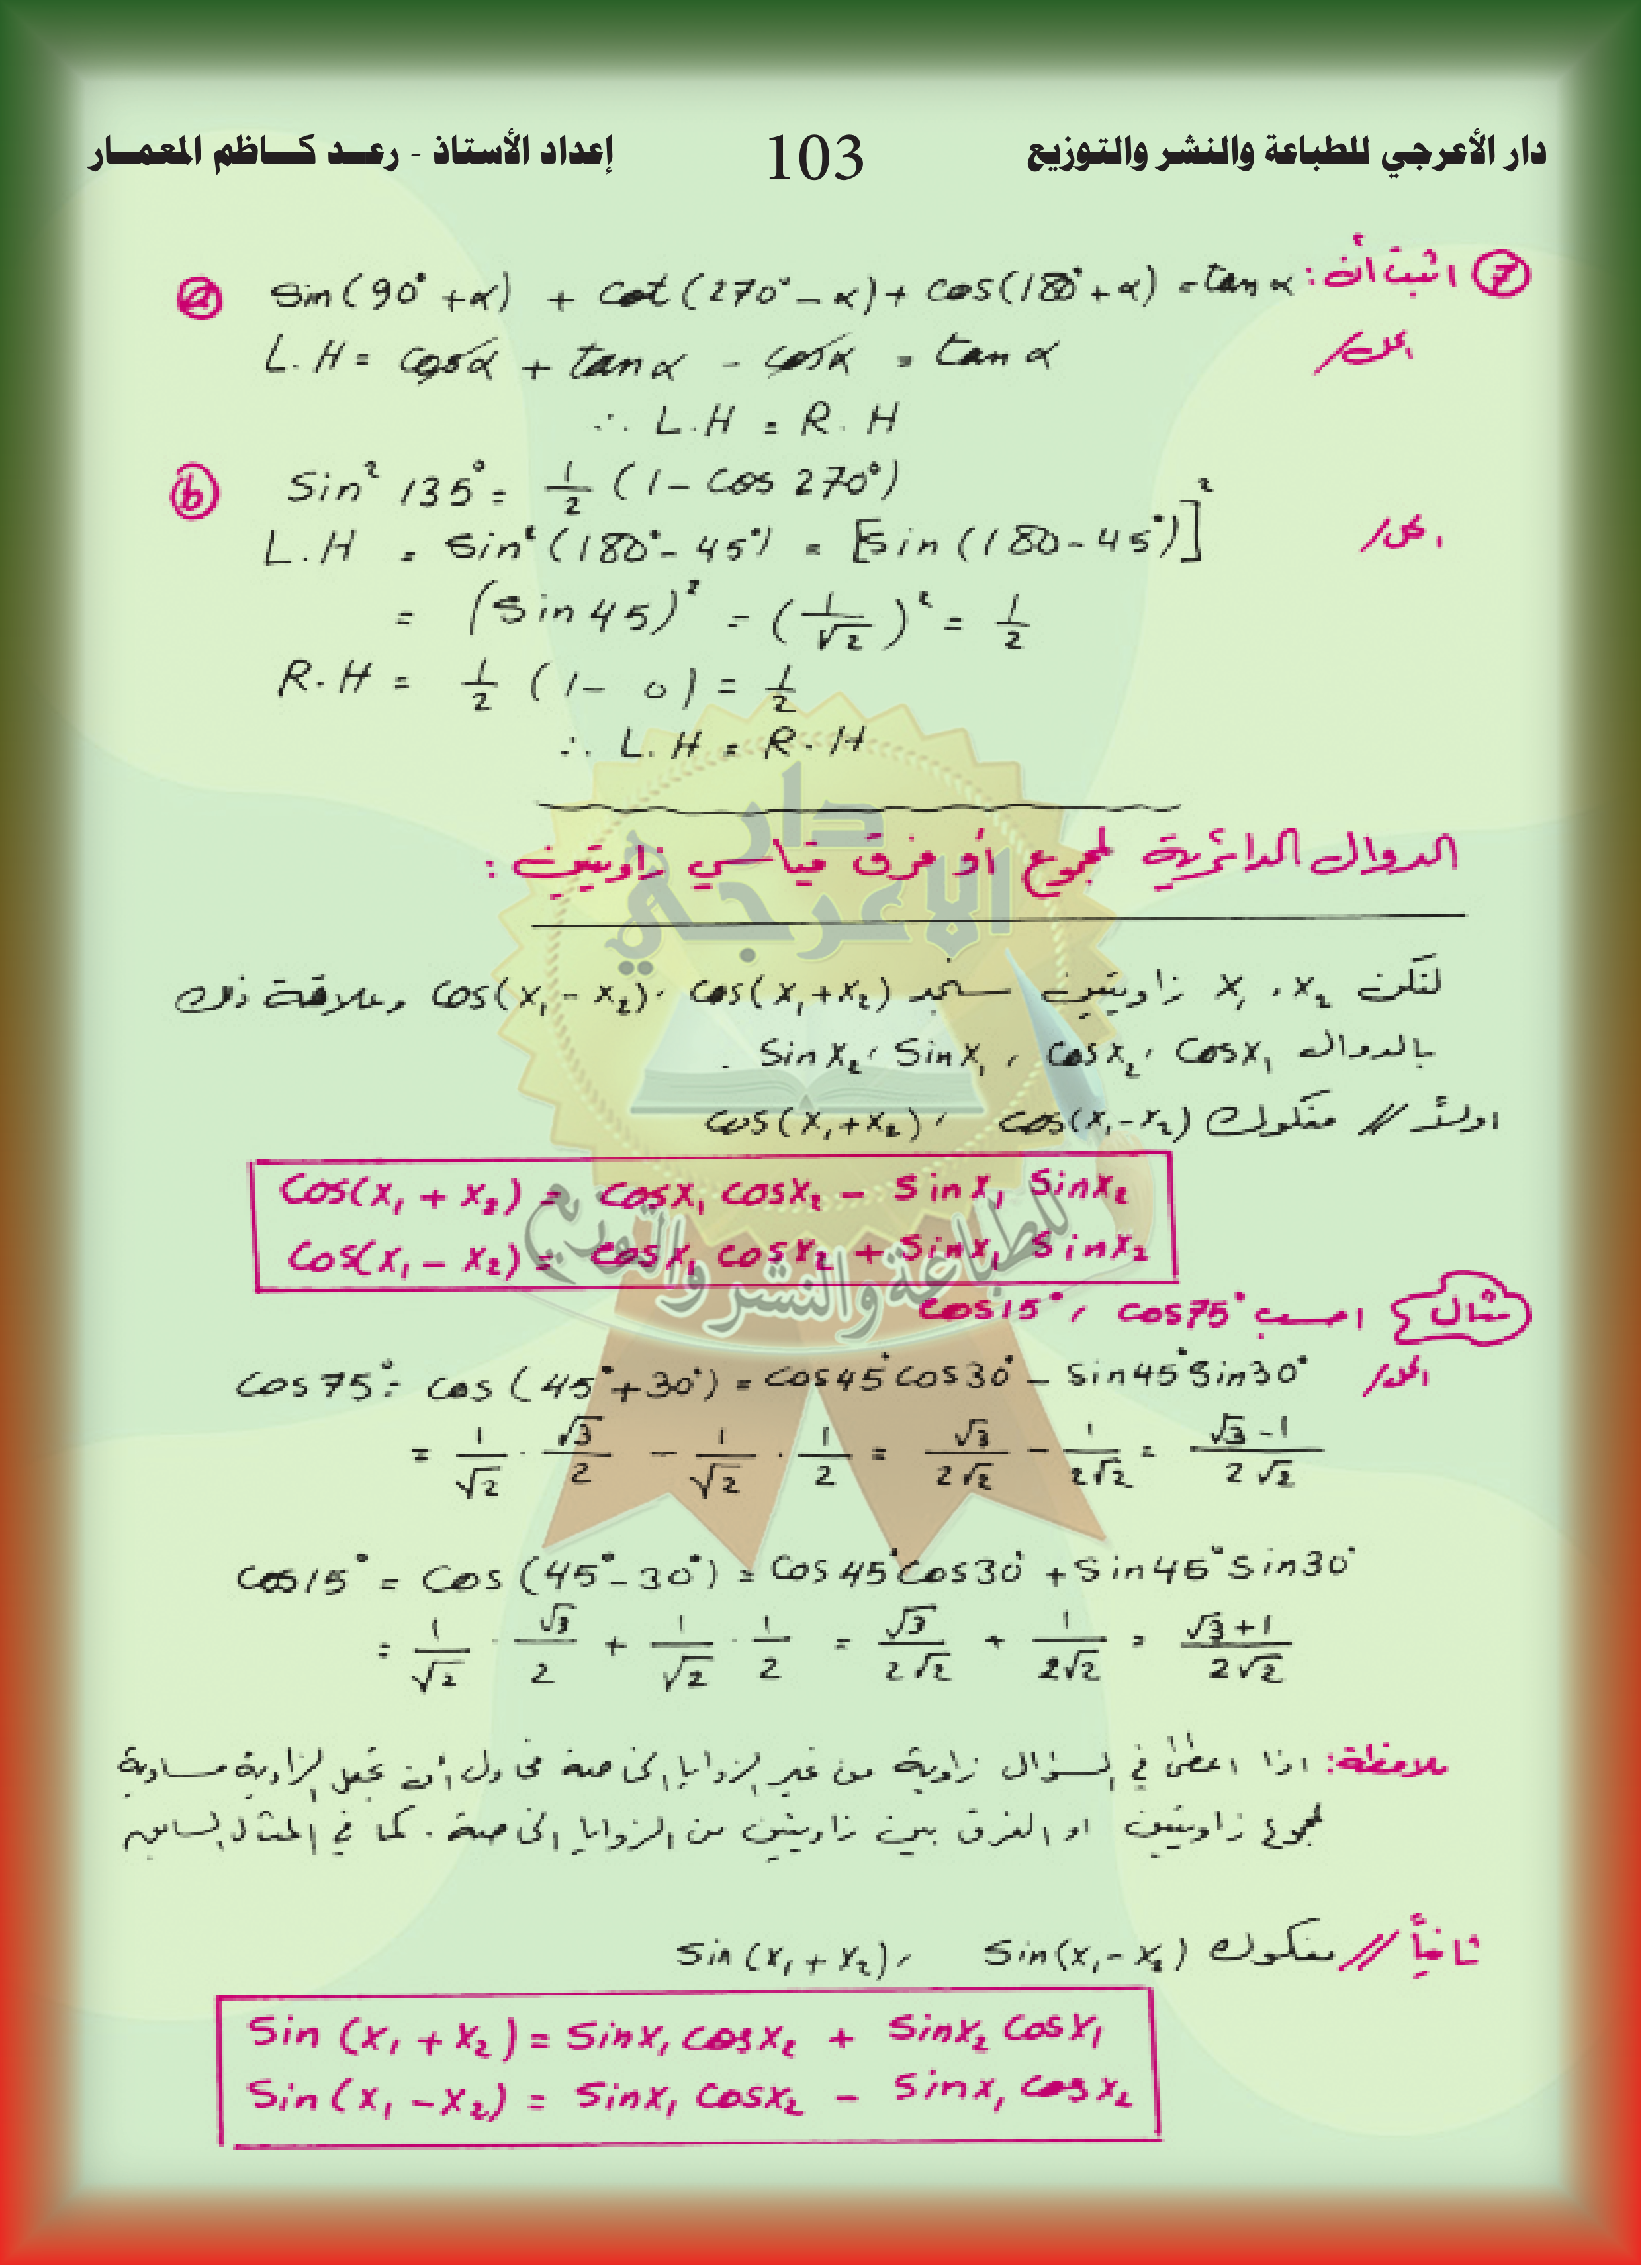 دار الأعرجي للطباعة والنشر والتوزيع 103 إعداد الأستاذ - رعـد كـاظم المعمـار
⑦ اثبت أن:
ⓐ sin(90° + α) + cot(270° - α) + cos(180° + α) = tan α
الحل/
L.H = cos α + tan α - cos α = tan α
∴ L.H = R.H
ⓑ Sin² 135° = 1/2 (1 - cos 270°)
الحل/
L.H = sin²(180° - 45°) = [sin(180 - 45°)]²
= (sin 45)² = (1/√2)² = 1/2
R.H = 1/2 (1 - 0) = 1/2
∴ L.H = R.H
الدوال الدائرية لمجموع أو فرق قياسي زاويتين :
لتكن x₁ ، x₂ زاويتين سنجد cos(x₁ + x₂) ، cos(x₁ - x₂) وعلاقة ذلك
بالدوال cosx₁ ، cosx₂ ، sinx₁ ، sinx₂ .
اولاً // مفكوك cos(x₁ - x₂) ، cos(x₁ + x₂)
Cos(x₁ + x₂) = cosx₁ cosx₂ - sinx₁ sinx₂
Cos(x₁ - x₂) = cosx₁ cosx₂ + sinx₁ sinx₂
مثال احسب cos75° ، cos15°
الحل/
cos75° = cos(45° + 30°) = cos45° cos30° - sin45° sin30°
= 1/√2 · √3/2 - 1/√2 · 1/2 = √3/2√2 - 1/2√2 = √3-1/2√2
cos15° = cos(45° - 30°) = cos45° cos30° + sin45° sin30°
= 1/√2 · √3/2 + 1/√2 · 1/2 = √3/2√2 + 1/2√2 = √3+1/2√2
ملاحظة: اذا اعطى في السؤال زاوية من غير الزوايا الخاصة نحاول أن نجعل الزاوية مساوية
لمجموع زاويتين او الفرق بين زاويتين من الزوايا الخاصة . كما في المثال السابق
ثانياً // مفكوك sin(x₁ - x₂) ، sin(x₁ + x₂)
Sin(x₁ + x₂) = sinx₁ cosx₂ + sinx₂ cosx₁
Sin(x₁ - x₂) = sinx₁ cosx₂ - sinx₁ cosx₂
دار
الاعرجي
للطباعة والنشر والتوزيع